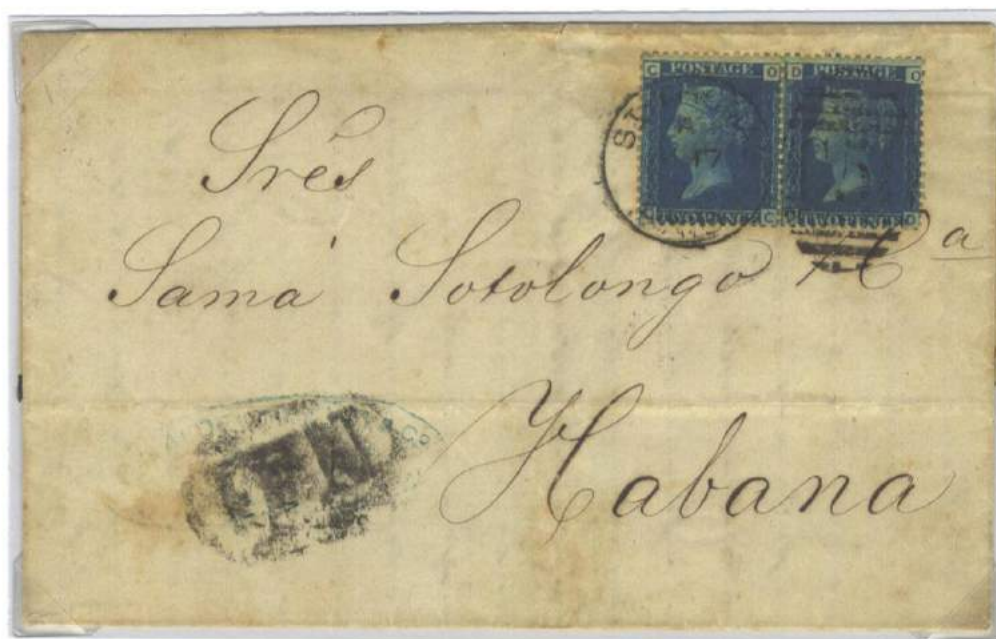 C POSTAGE O D POSTAGE O
O TWO PENCE C O TWO PENCE D
Srẽs
Samá Sotolongo y Cª
Habana
& Co